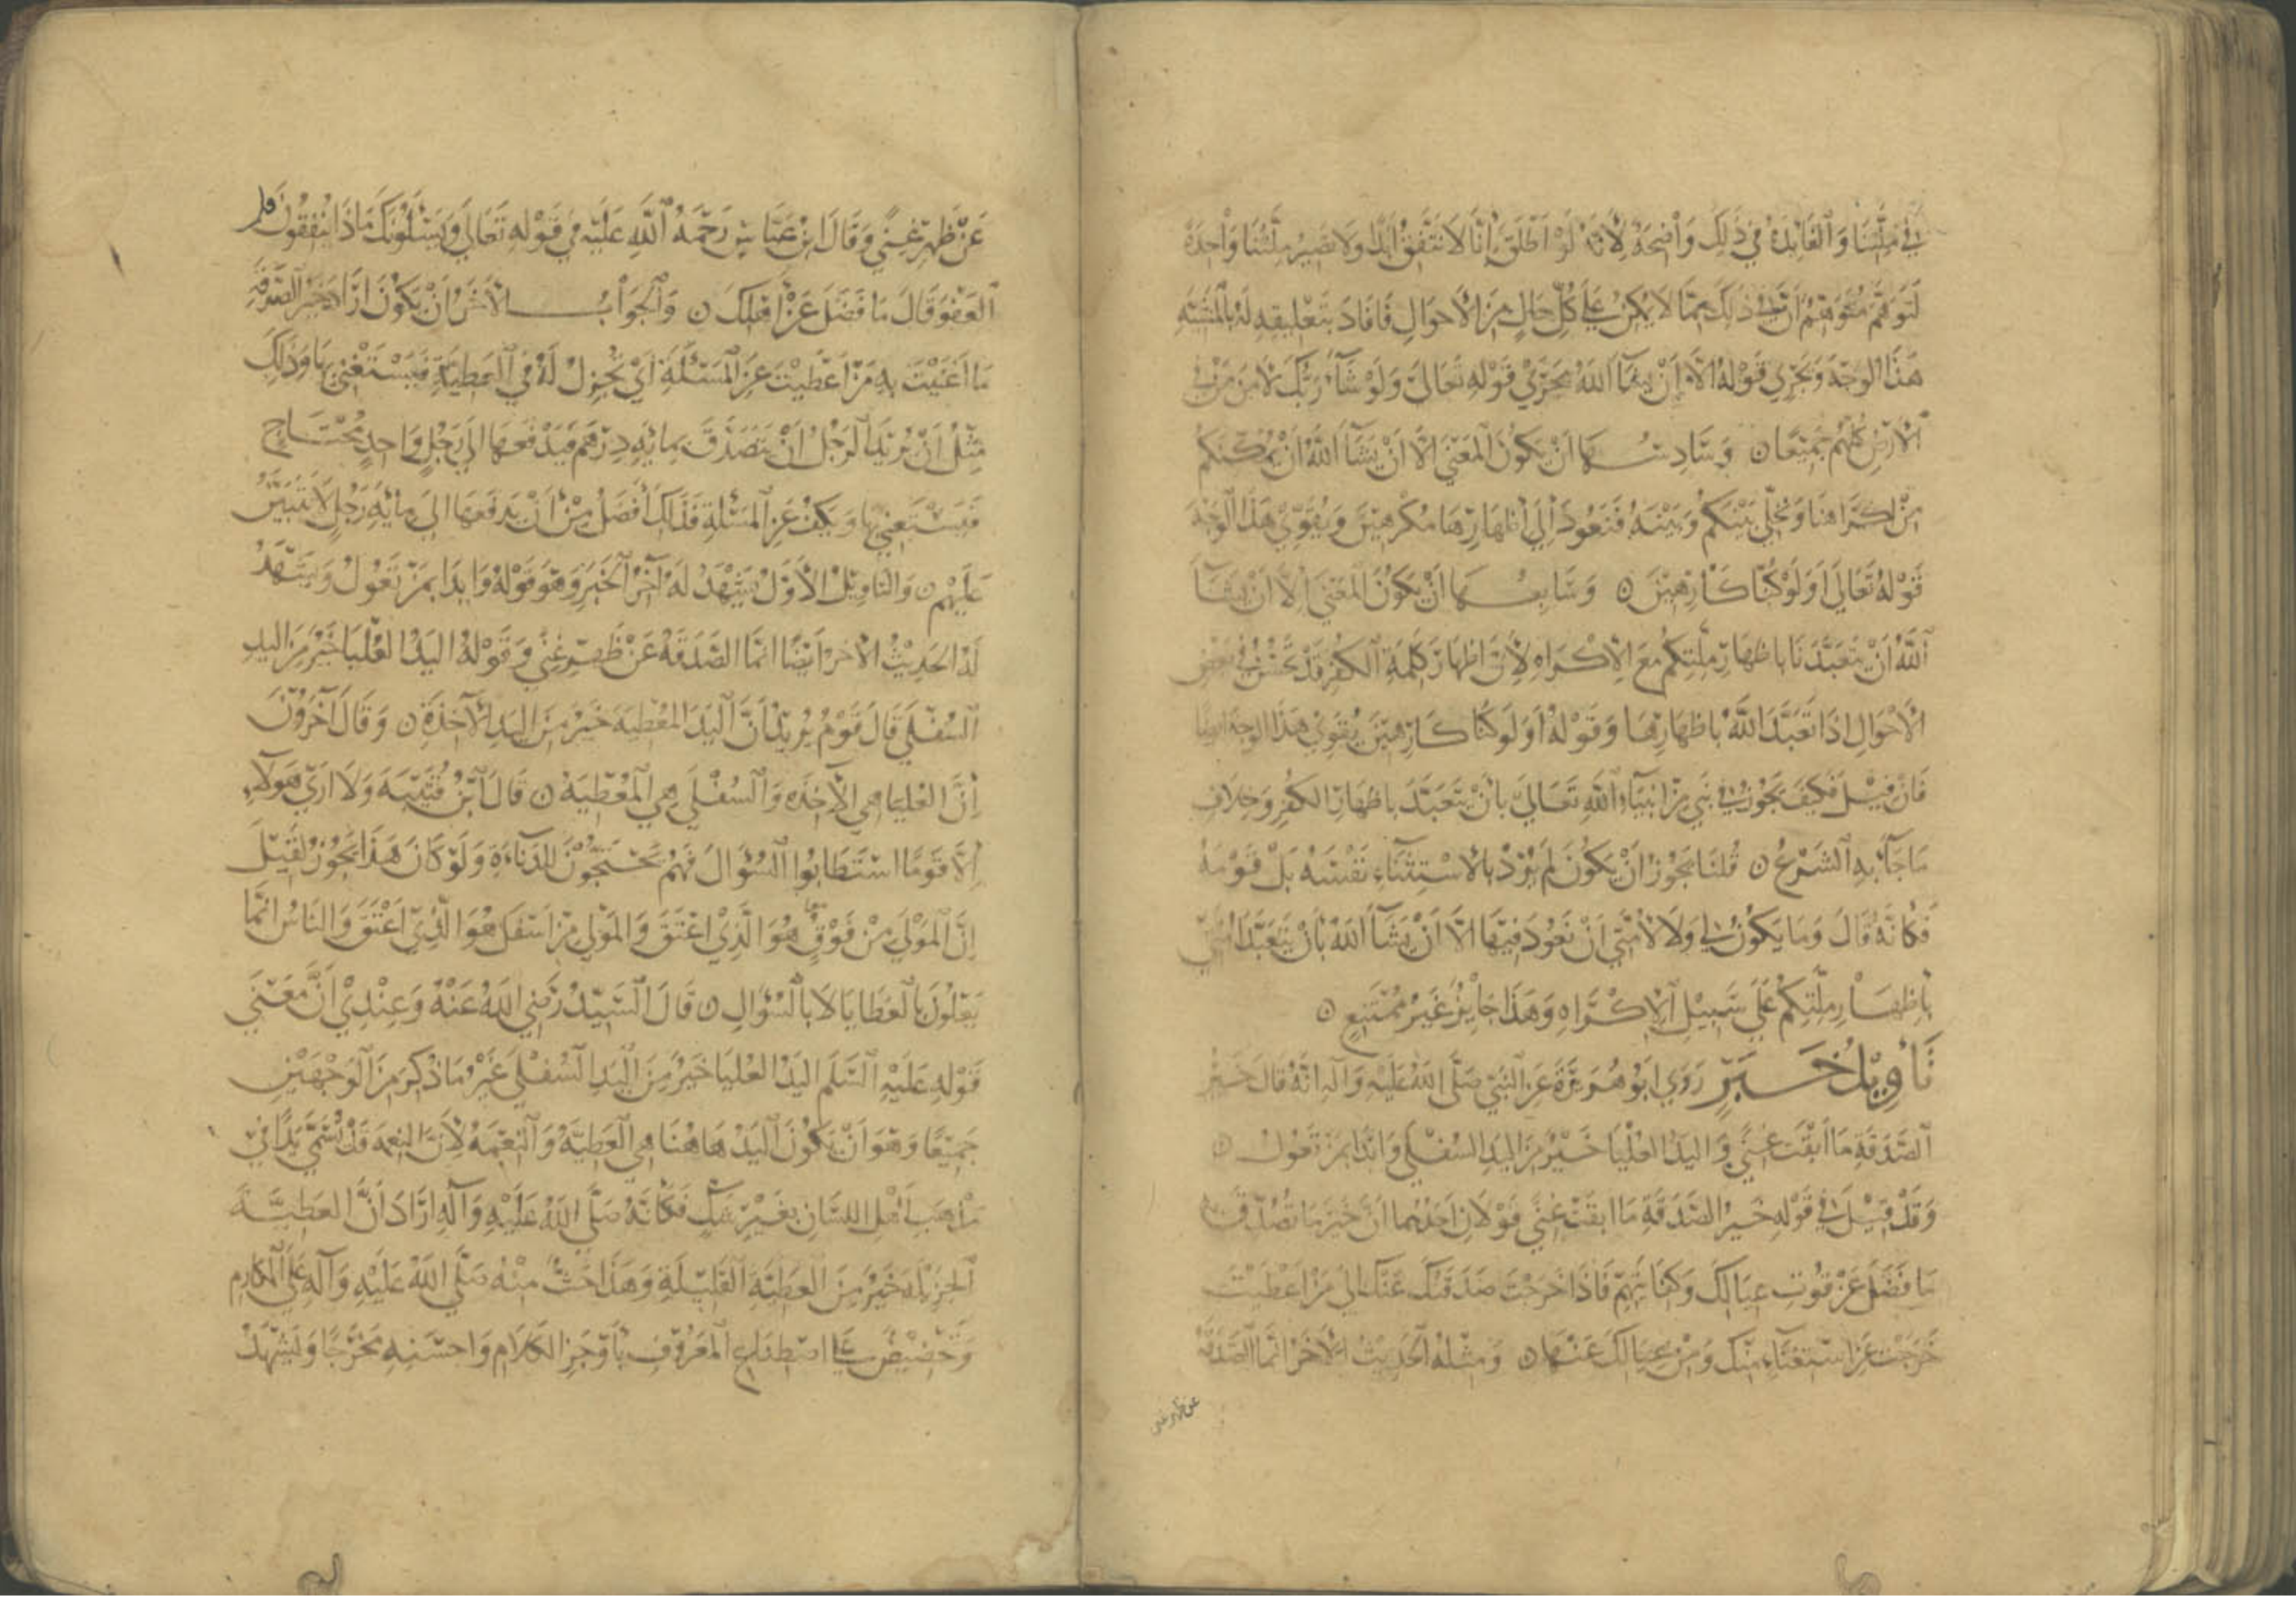 في ملتنا والفائدة في ذلك واضحة لأنه لو اطلق إنا لا نتفق ابدا ولا تصير ملتنا واحدة
لتوهم متوهم ان ذلك مما لا يمكن على كل حال من الأحوال فافاد بتعليقه له بالمشية
هذا الوجه وتجري قوله الا ان يشا الله مجرى قوله تعالى ولو شاء ربك لامن من في
الأرض كلهم جميعا ٥ وسادسها ان يكون المعنى الا ان يشاء الله ان يمكنكم
من اكراهنا ويخلي بينكم وبينه فنعود إلى اظهارها مكرهين ويقوي هذا الوجه
قوله تعالى اولو كنا كارهين ٥ وسابعها ان يكون المعنى الا ان يشاء
الله ان يتعبدنا باظهار ملتكم مع الاكراه لأن اظهار كلمة الكفر قد تحسن في بعض
الاحوال اذا تعبد الله باظهارها وقوله اولو كنا كارهين يقوي هذا الوجه ايضا
فان قيل فكيف يجوز في نبي من انبياء الله تعالى بان يتعبد باظهار الكفر وخلاف
ما جاء به الشرع ٥ قلنا يجوز ان يكون لم يرد بالاستثناء نفسه بل قومه
فكانه قال وما يكون لي ولا لأمتي ان نعود فيها الا ان يشاء الله بأن يتعبد امتي
بإظهار ملتكم على سبيل الاكراه وهذا جايز غير ممتنع ٥
تأويل خبر روى ابو هريرة عن النبي صلى الله عليه وآله انه قال خير
الصدقة ما ابقت غنى واليد العليا خير من اليد السفلى وابدا بمن تعول ٥
وقد قيل في قوله خير الصدقة ما ابقت غنى قولان احدهما ان خير ما تصدقت
ما فضل عن قوت عيالك وكفايتهم فاذا خرجت صدقتك عنك الى من اعطيت
خرجت عن استغناء منك ومن عيالك عنها ٥ ومثله الحديث الآخر انما الصدقة
عن ظهر غنى
عن ظهر غنى وقال ابن عباس رحمة الله عليه في قوله تعالى ويسئلونك ماذا ينفقون قل
العفو قال ما فضل عن اهلك ٥ والجواب الآخر ان يكون اراد خير الصدقة
ما اغنيت به من اعطيت عن المسئلة اي تجزل له في العطية فيستغني بها وذلك
مثل ان يريد الرجل ان يتصدق بمائة درهم فيدفعها الى رجل واحد محتاج
فيستغني بها ويكف عن المسئلة فذلك افضل من ان يدفعها الى مائة رجل لا تبين
عليهم ٥ والتاويل الأول يشهد له آخر الخبر وهو قوله وابدا بمن تعول ويشهد
له الحديث الآخر ايضا انما الصدقة عن ظهر غنى وقوله اليد العليا خير من اليد
السفلى قال قوم يريد ان اليد المعطية خير من اليد الآخذة ٥ وقال آخرون
إن العليا هي الآخذه والسفلى هي المعطية ٥ قال ابن قتيبة ولا ارى هولاء
إلا قوما استطابوا السؤال فهم يحتجون للدناءة ولو كان هذا يجوز لقيل
إن المولى من فوق هو الذي اعتق والمولى من اسفل هو الذي اعتق والناس انما
يعلون بالعطايا لا بالسؤال ٥ قال السيد رضي الله عنه وعندي أن معنى
قوله عليه السلم اليد العليا خير من اليد السفلى غير ما ذكر من الوجهين
جميعا وهو ان يكون اليد هاهنا هي العطية والنعمة لأن النعمة قد تسمى يدا في
مذهب اهل اللسان بغير شك فكأنه صلى الله عليه وآله اراد أن العطية
الجزيلة خير من العطية القليلة وهذا حث منه صلى الله عليه وآله على المكارم
وتحضيض على اصطناع المعروف بأوجز الكلام واحسنه مخرجا ويشهد